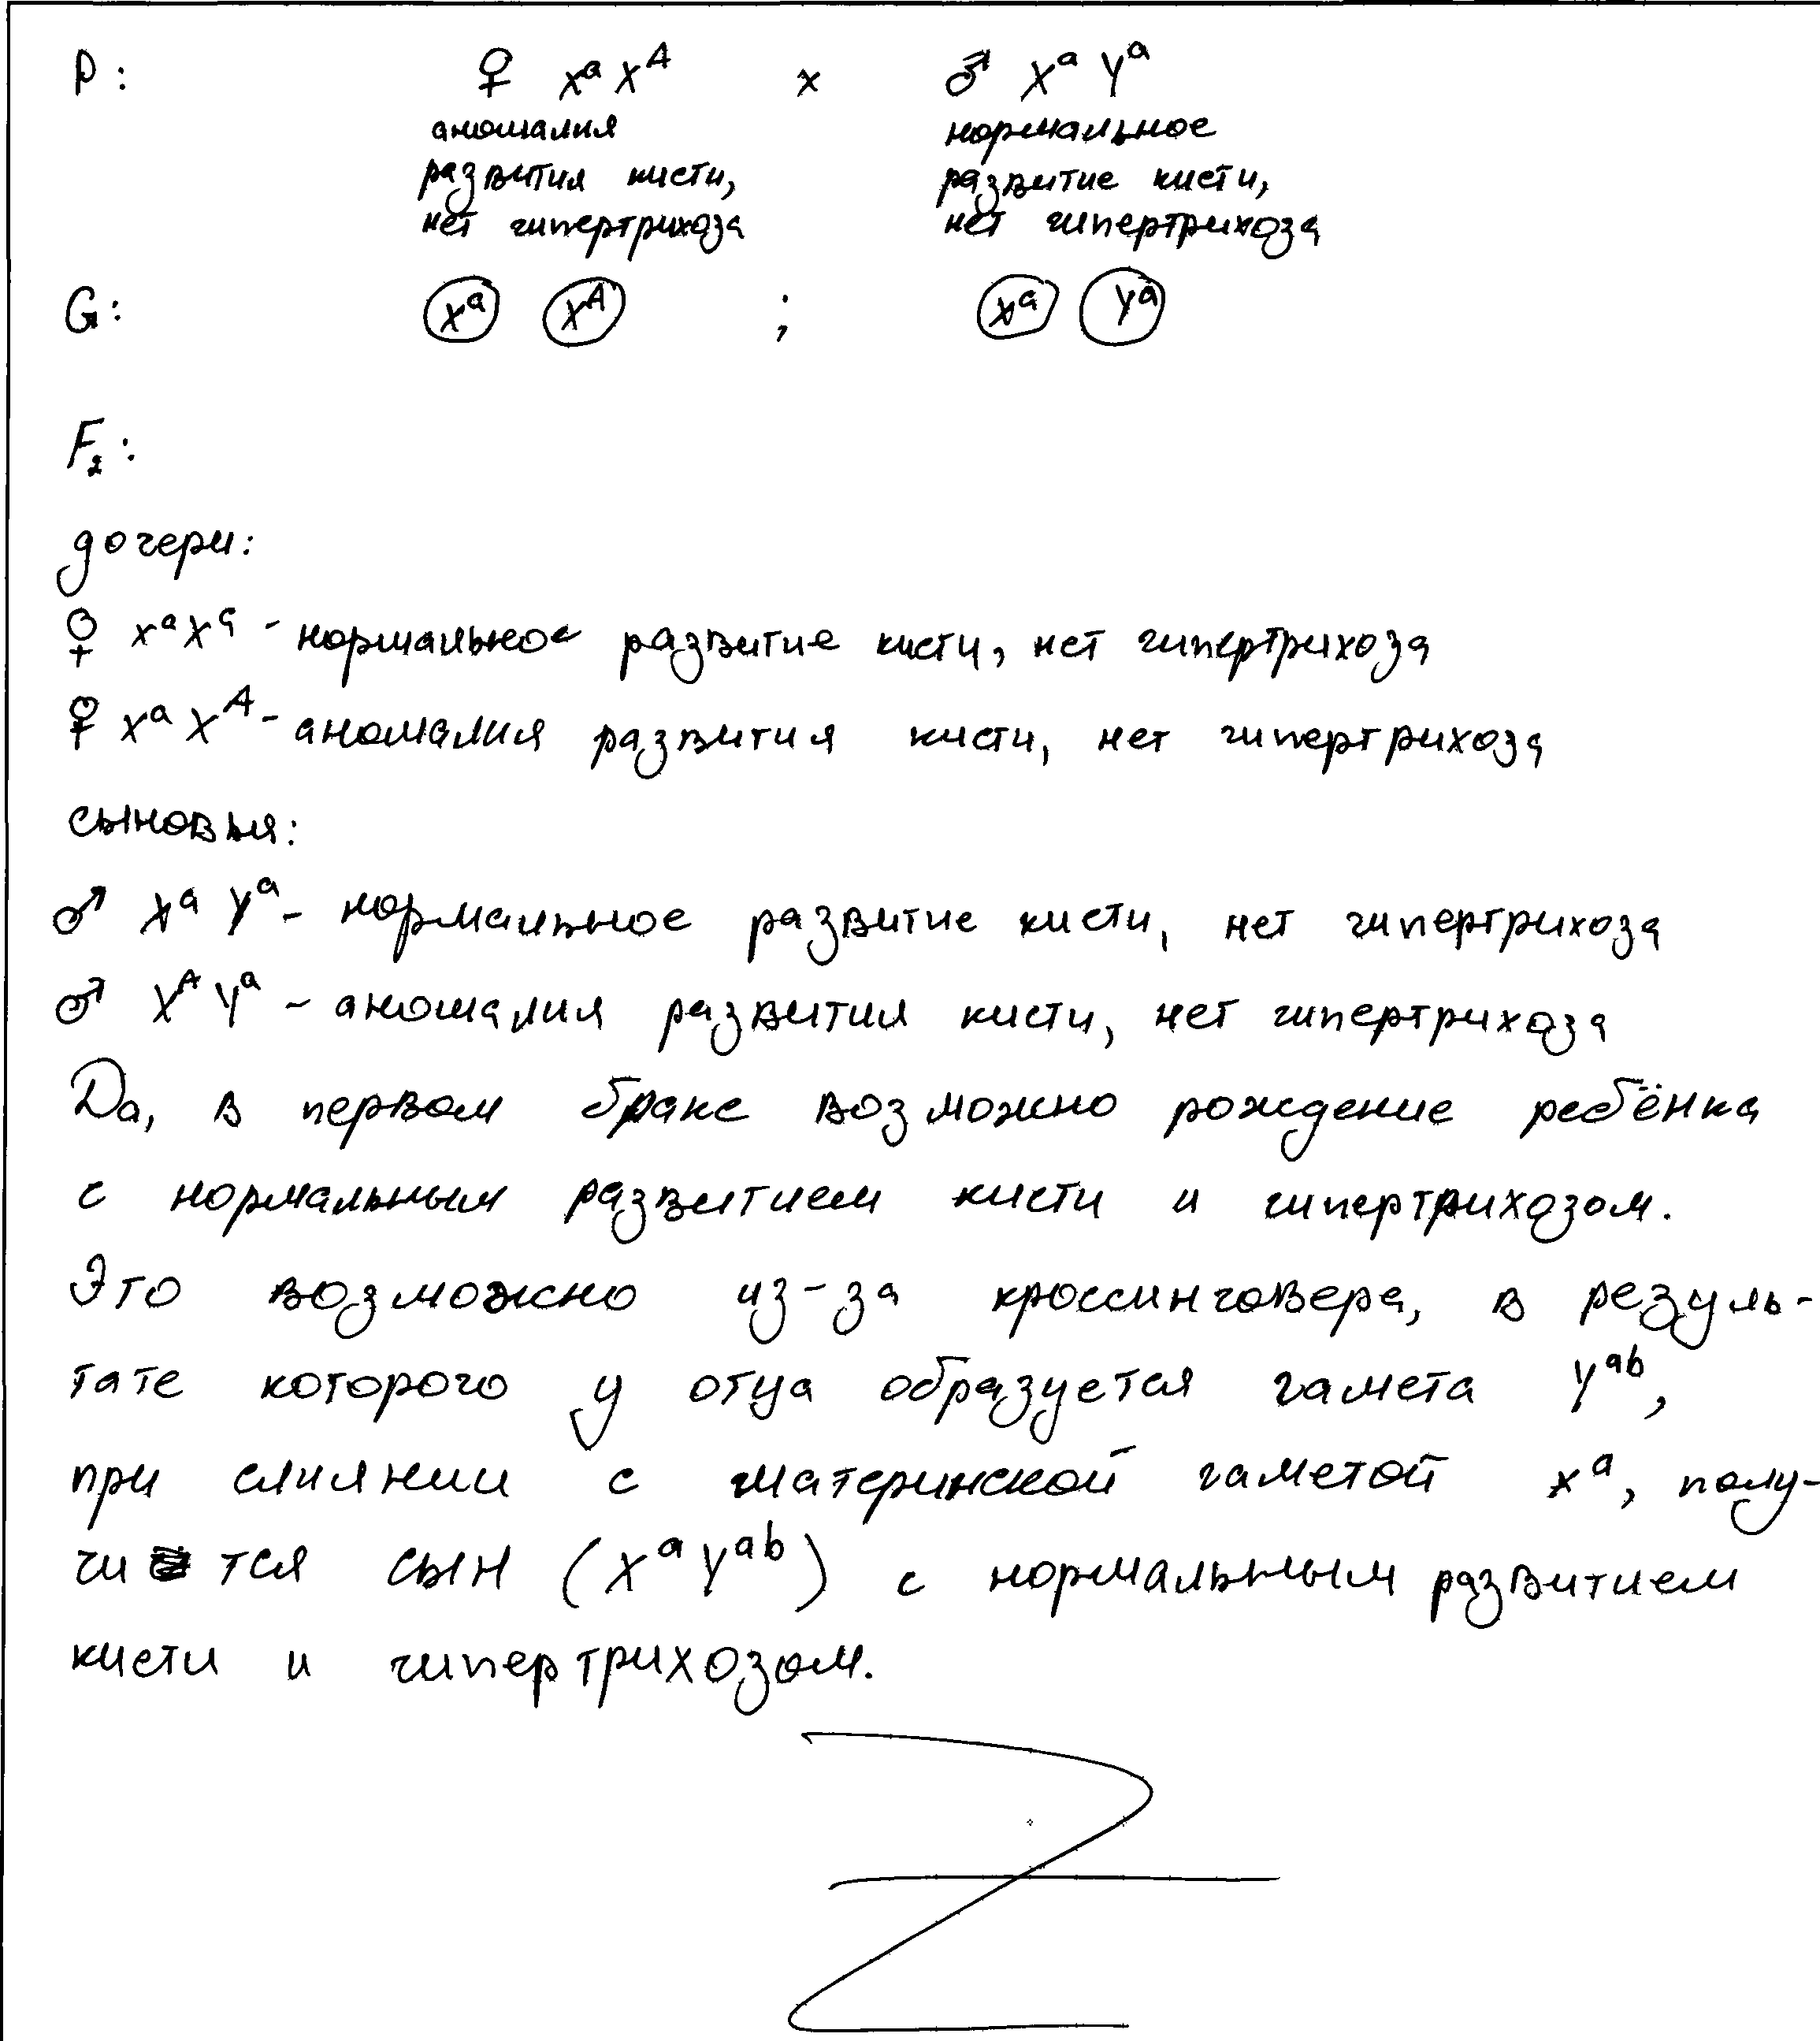 P: ♀ XᵃXᴬ x ♂ XᵃYᵃ
аномалия нормальное
развития кисти, развитие кисти,
нет гипертрихоза нет гипертрихоза
G: Xᵃ Xᴬ ; Xᵃ Yᵃ
F₂:
дочери:
♀ XᵃXᵃ - нормальное развитие кисти, нет гипертрихоза
♀ XᵃXᴬ - аномалия развития кисти, нет гипертрихоза
сыновья:
♂ XᵃYᵃ - нормальное развитие кисти, нет гипертрихоза
♂ XᴬYᵃ - аномалия развития кисти, нет гипертрихоза
Да, в первом браке возможно рождение ребёнка
с нормальным развитием кисти и гипертрихозом.
Это возможно из-за кроссинговера, в резуль-
тате которого у отца образуется гамета Yᵃᵇ,
при слиянии с материнской гаметой Xᵃ, полу-
чится сын (XᵃYᵃᵇ) с нормальным развитием
кисти и гипертрихозом.